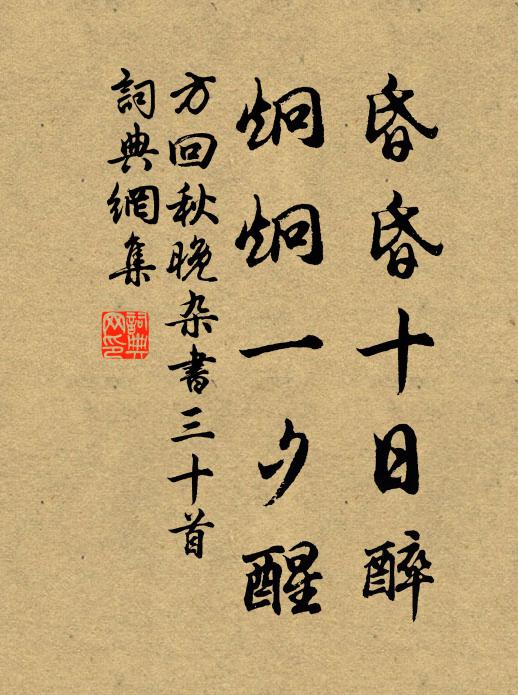 昏昏十日醉
炯炯一夕醒
方回秋晚杂書三十首
詞典網集
詞典網印